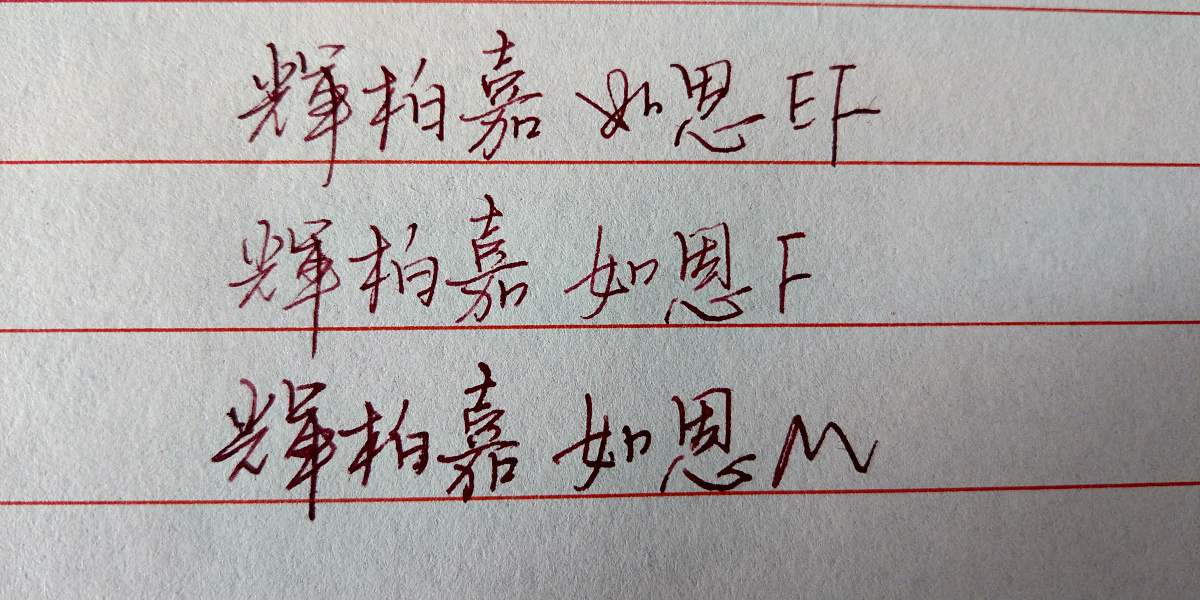 輝柏嘉 如恩 EF
輝柏嘉 如恩 F
輝柏嘉 如恩 M